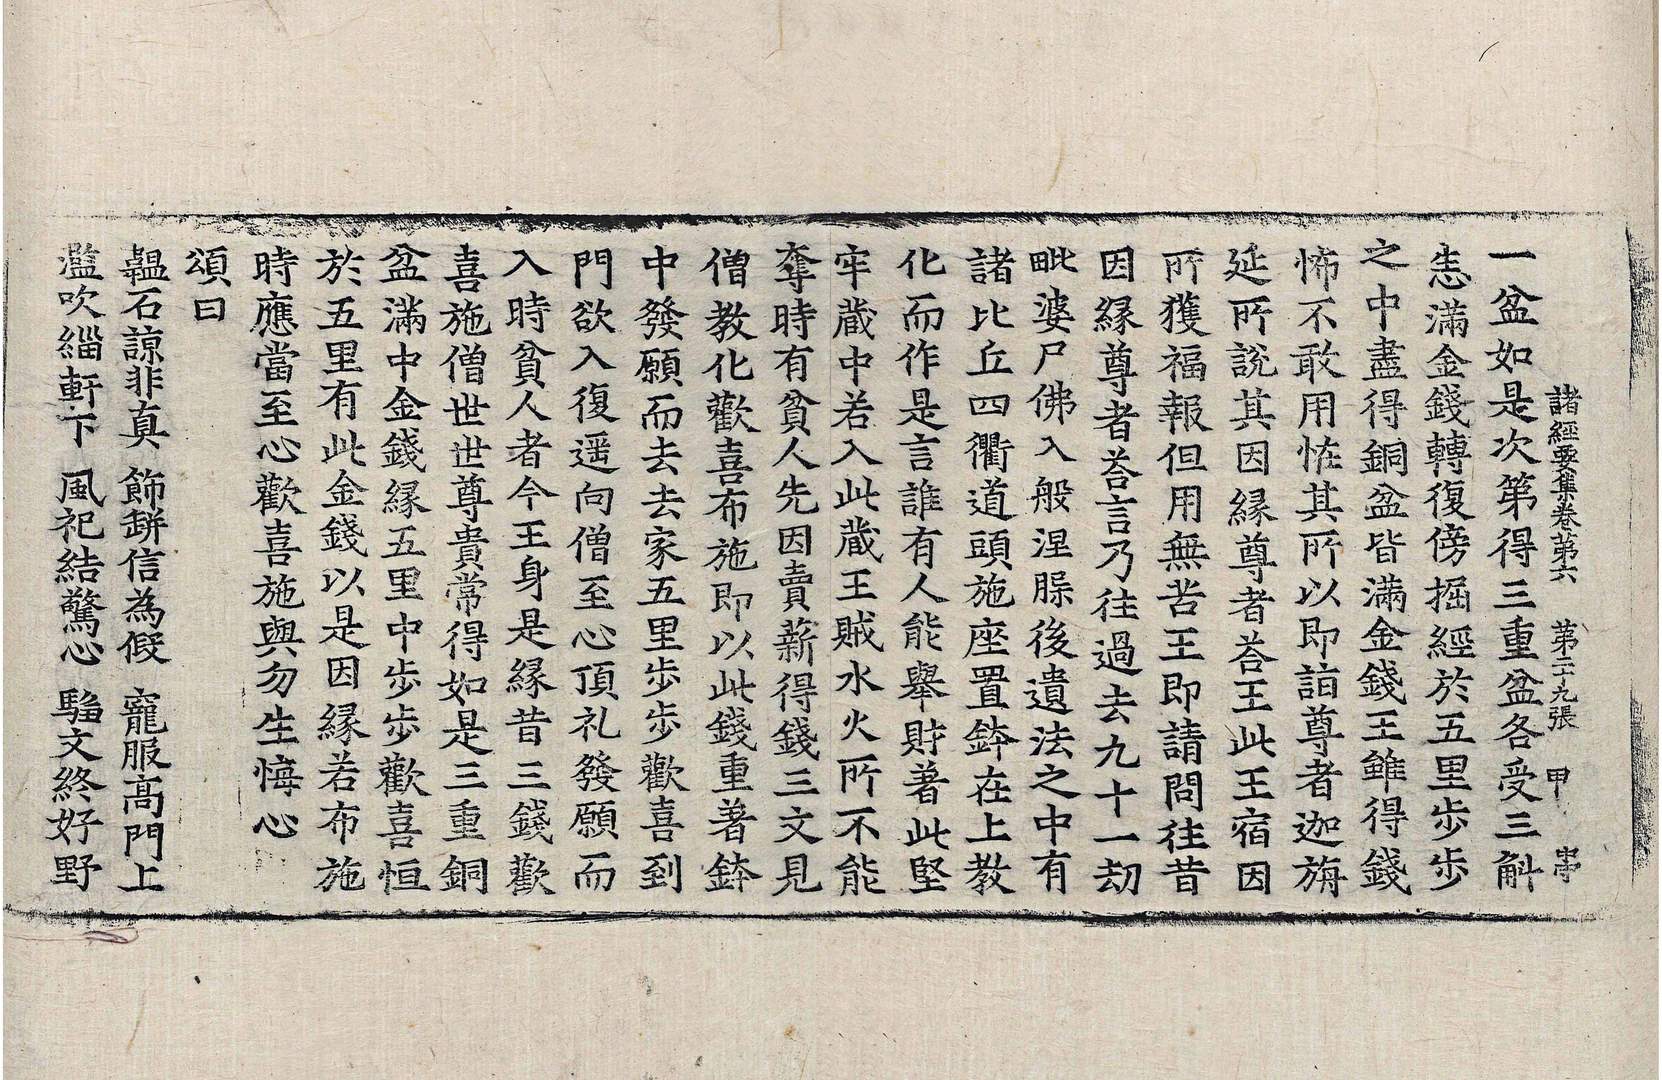 諸經要集卷第六　第二九張　甲
一盆如是次第得三重盆各受三斛
悉滿金錢轉復傍掘經於五里步步
之中盡得銅盆皆滿金錢王雖得錢
怖不敢用恠其所以即詣尊者迦旃
延所說其因緣尊者荅王此王宿因
所獲福報但用無苦王即請問往昔
因緣尊者荅言乃往過去九十一劫
毗婆尸佛入般涅槃後遺法之中有
諸比丘四衢道頭施座置鉢在上教
化而作是言誰有人能舉財著此堅
牢藏中若入此藏王賊水火所不能
奪時有貧人先因賣薪得錢三文見
僧教化歡喜布施即以此錢重著鉢
中發願而去去家五里步步歡喜到
門欲入復遥向僧至心頂礼發願而
入時貧人者今王身是緣昔三錢歡
喜施僧世世尊貴常得如是三重銅
盆滿中金錢緣五里中步步歡喜恒
於五里有此金錢以是因緣若布施
時應當至心歡喜施與勿生悔心
頌曰
韞石諒非真　飾缾信為假　寵服高門上
濫吹緇軒下　風祀結驚心　騶文終好野